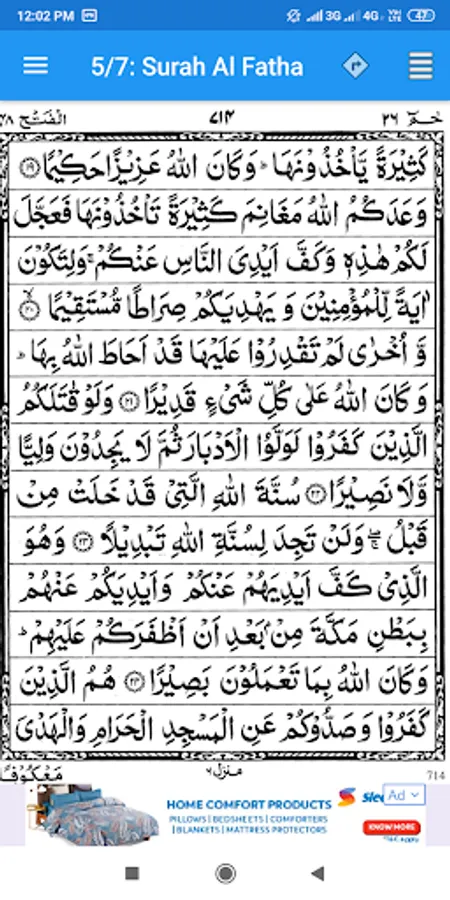 12:02 PM
3G 4G VoLTE 47
5/7: Surah Al Fatha
حٰمٓ ٢٦ ٧١٤ الْفَتْح ٤٨
كَثِيْرَةً يَّاْخُذُوْنَهَا ؕ وَكَانَ اللّٰهُ عَزِيْزًا حَكِيْمًا ﴿١٩﴾
وَعَدَكُمُ اللّٰهُ مَغَانِمَ كَثِيْرَةً تَاْخُذُوْنَهَا فَعَجَّلَ
لَكُمْ هٰذِهٖ وَكَفَّ اَيْدِيَ النَّاسِ عَنْكُمْ ۚ وَلِتَكُوْنَ
اٰيَةً لِّلْمُؤْمِنِيْنَ وَ يَهْدِيَكُمْ صِرَاطًا مُّسْتَقِيْمًا ﴿٢٠﴾
وَّ اُخْرٰى لَمْ تَقْدِرُوْا عَلَيْهَا قَدْ اَحَاطَ اللّٰهُ بِهَا ؕ
وَ كَانَ اللّٰهُ عَلٰى كُلِّ شَيْءٍ قَدِيْرًا ﴿٢١﴾ وَلَوْ قٰتَلَكُمُ
الَّذِيْنَ كَفَرُوْا لَوَلَّوُا الْاَدْبَارَ ثُمَّ لَا يَجِدُوْنَ وَلِيًّا
وَّلَا نَصِيْرًا ﴿٢٢﴾ سُنَّةَ اللّٰهِ الَّتِيْ قَدْ خَلَتْ مِنْ
قَبْلُ ۖۚ وَلَنْ تَجِدَ لِسُنَّةِ اللّٰهِ تَبْدِيْلًا ﴿٢٣﴾ وَهُوَ
الَّذِيْ كَفَّ اَيْدِيَهُمْ عَنْكُمْ وَاَيْدِيَكُمْ عَنْهُمْ
بِبَطْنِ مَكَّةَ مِنْۢ بَعْدِ اَنْ اَظْفَرَكُمْ عَلَيْهِمْ ؕ
وَكَانَ اللّٰهُ بِمَا تَعْمَلُوْنَ بَصِيْرًا ﴿٢٤﴾ هُمُ الَّذِيْنَ
كَفَرُوْا وَصَدُّوْكُمْ عَنِ الْمَسْجِدِ الْحَرَامِ وَالْهَدْيَ
714 منزل ٦ مَعْكُوْفًا
HOME COMFORT PRODUCTS
PILLOWS | BEDSHEETS | COMFORTERS
| BLANKETS | MATTRESS PROTECTORS
Ad
KNOW MORE
*T&C Apply